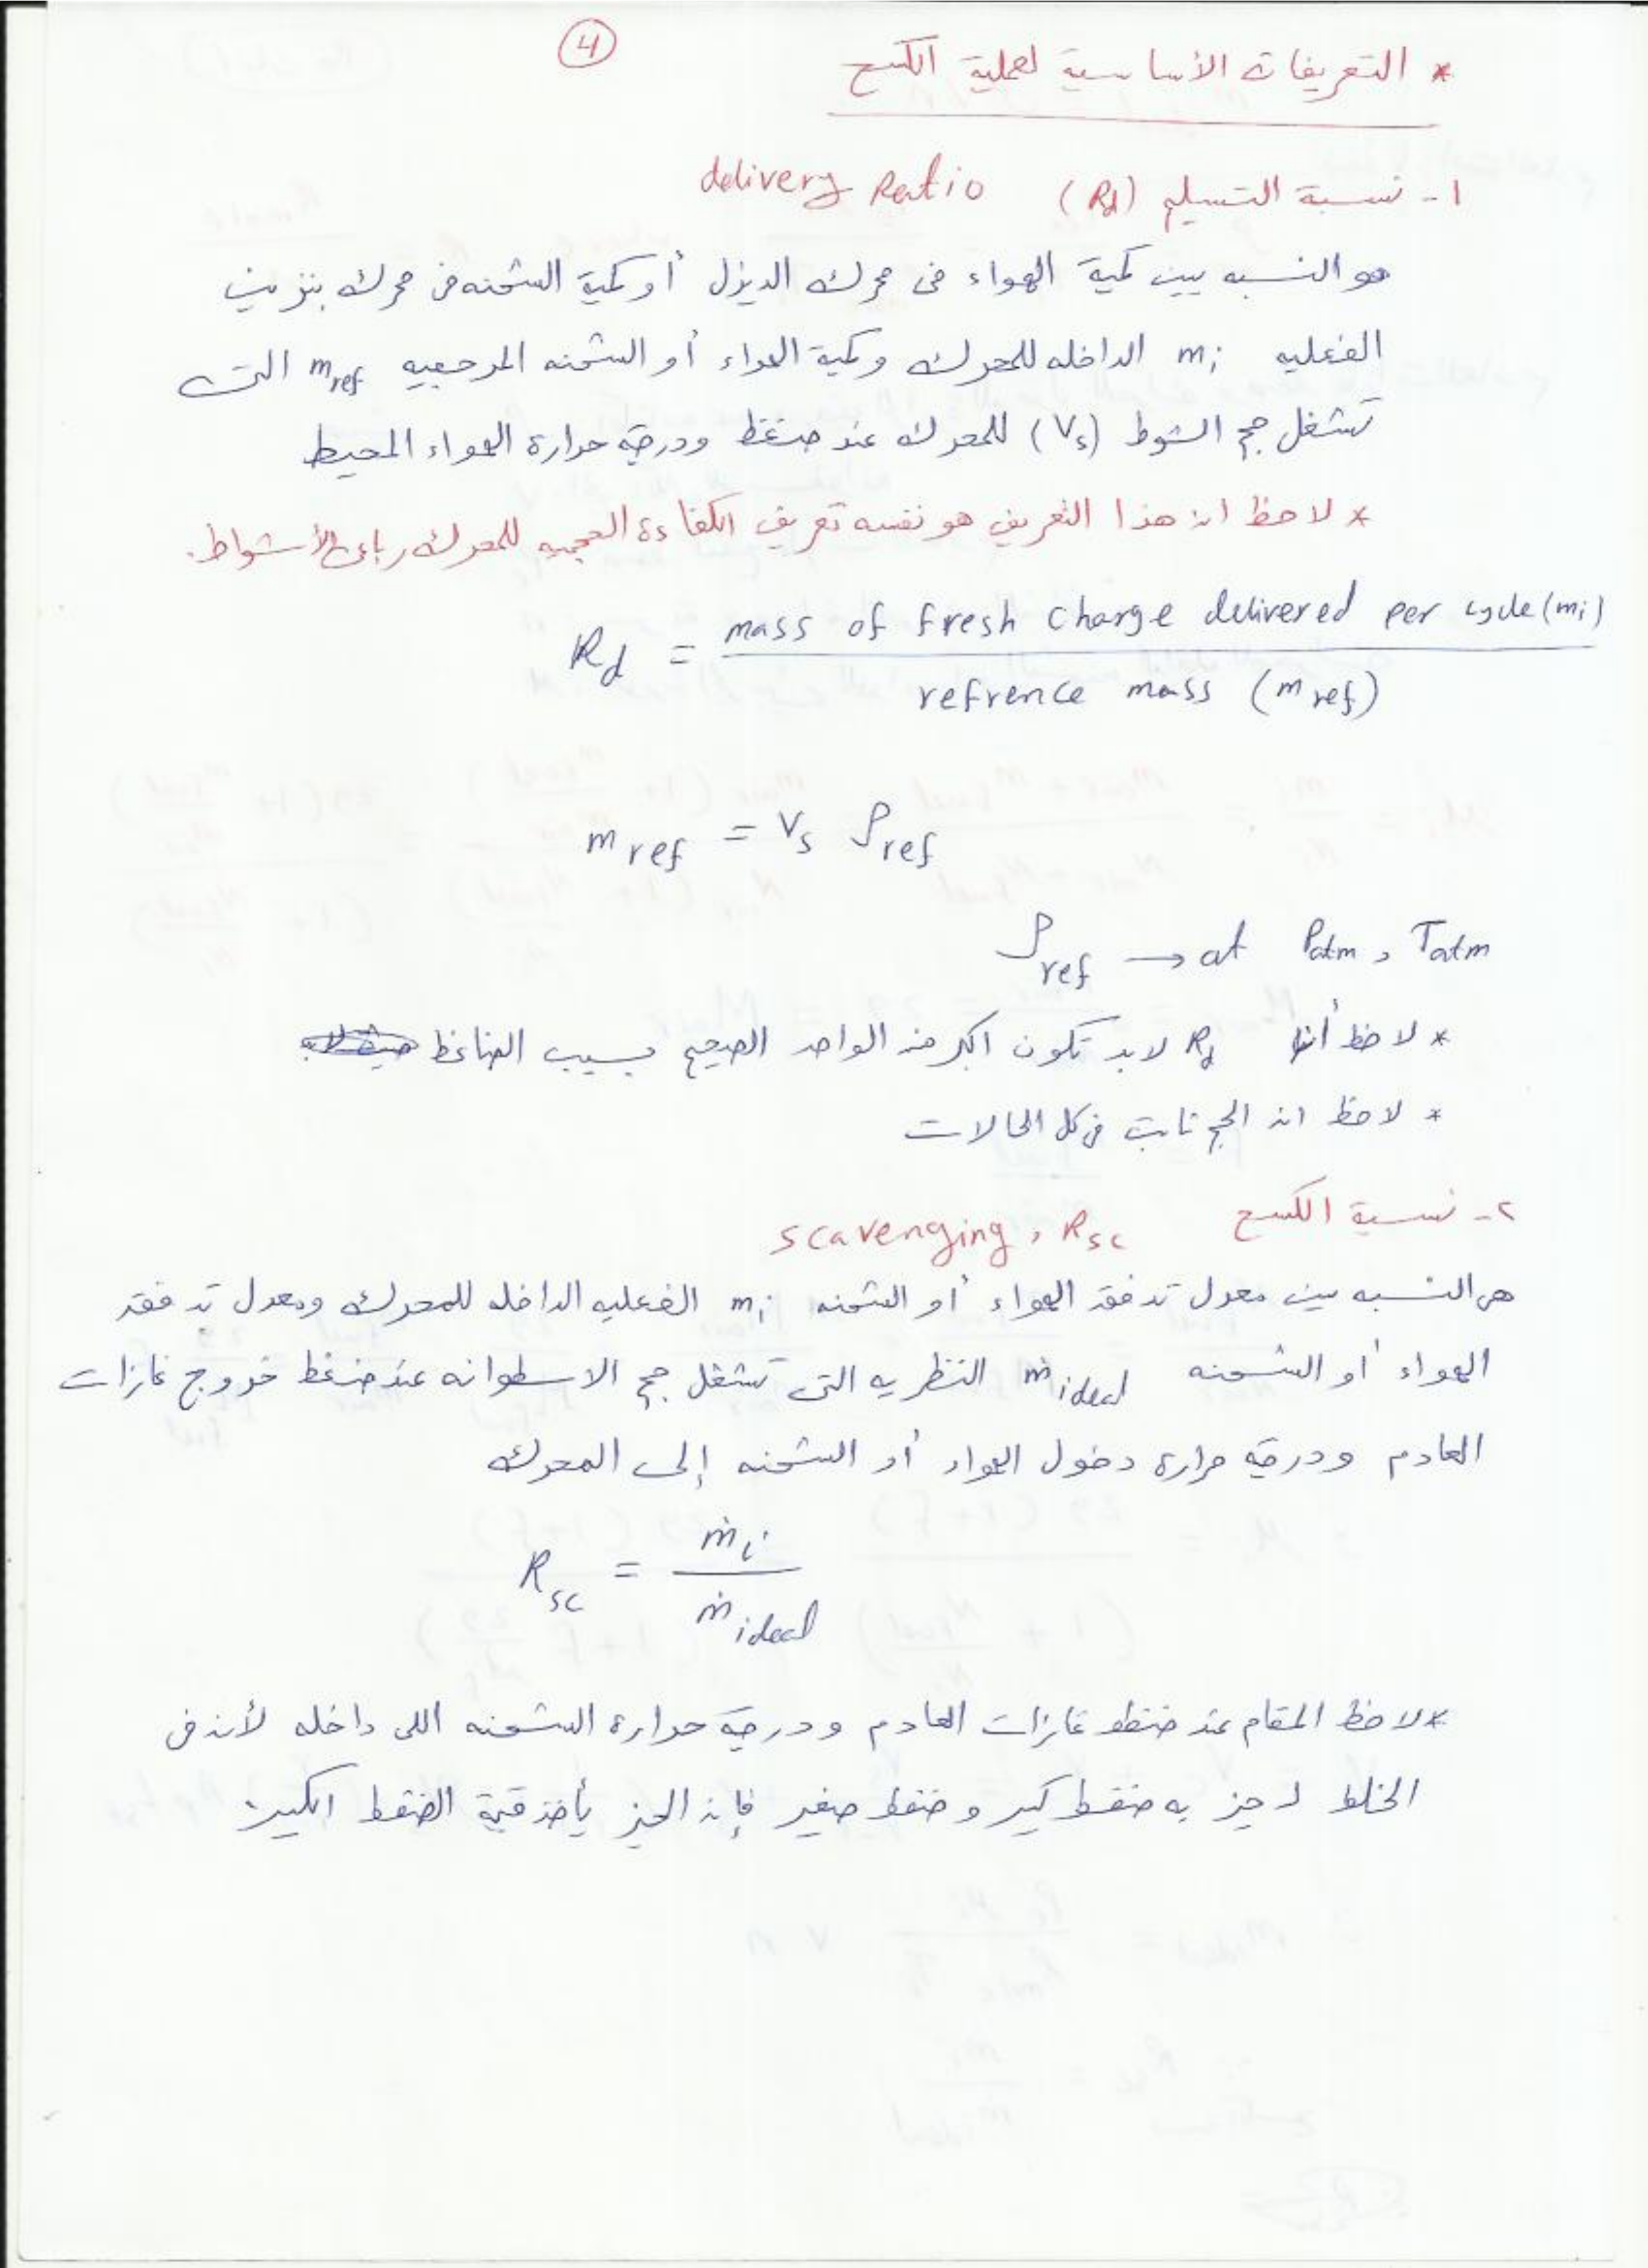 4
* التعريفات الأساسية لعملية الكسح
١- نسبة التسليم (Rd) delivery Ratio
هو النسبه بين كمية الهواء فى محرك الديزل أو كمية الشحنه فى محرك بنزين
الفعليه mi الداخله للمحرك وكمية الهواء أو الشحنه المرجعيه mref التى
تشغل حجم الشوط (Vs) للمحرك عند ضغط ودرجة حرارة الهواء المحيط
* لاحظ ان هذا التعريف هو نفسه تعريف الكفاءة الحجميه للمحرك رباعى الأشواط.
Rd = mass of fresh charge delivered per cycle (mi)
refrence mass (mref)
mref = Vs ρref
ρref → at Patm, Tatm
* لاحظ أن Rd لابد تكون اكبر من الواحد الصحيح بسبب الضاغط
* لاحظ ان الحجم ثابت فى كل الحالات
٢- نسبة الكسح scavenging, Rsc
هى النسبه بين معدل تدفق الهواء أو الشحنه mi الفعليه الداخله للمحرك ومعدل تدفق
الهواء أو الشحنه ṁideal النظريه التى تشغل حجم الاسطوانه عند ضغط خروج غازات
العادم ودرجة حرارة دخول الهواء أو الشحنه إلى المحرك
Rsc = ṁi
ṁideal
* لاحظ المقام عند ضغط غازات العادم ودرجة حرارة الشحنه اللى داخله لأن فى
الخلط لحيز به ضغط كبير وضغط صغير فإن الحيز يأخذ قيمة الضغط الكبير.